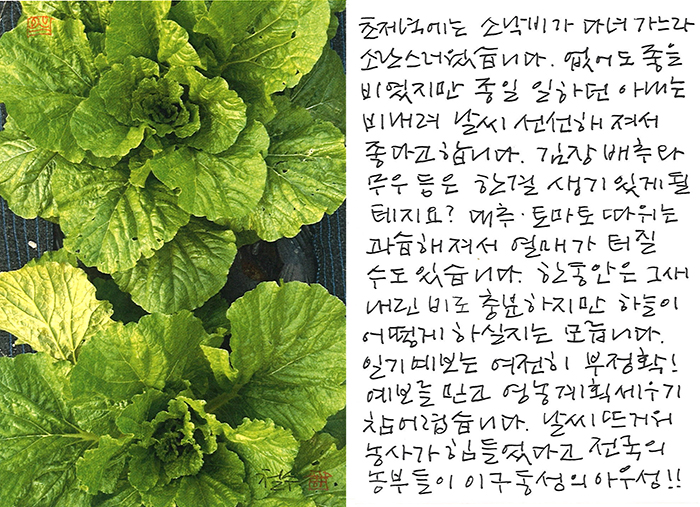 초저녁에는 소낙비가 다녀 가느라
소란스러웠습니다. 없어도 좋을
비였지만 종일 일하던 아내는
비내려 날씨 선선해 져서
좋다고합니다. 김장 배추와
무우 등은 한결 생기있게될
테지요? 대추·토마토 따위는
과습해져서 열매가 터질
수도있습니다. 한동안은 그새
내린 비로 충분하지만 하늘이
어떻게 하실지는 모릅니다.
일기예보는 여전히 부정확!
예보를 믿고 영농계획세우기
참어렵습니다. 날씨뜨거워
농사가힘들었다고 전국의
농부들이 이구동성의아우성!!
철수